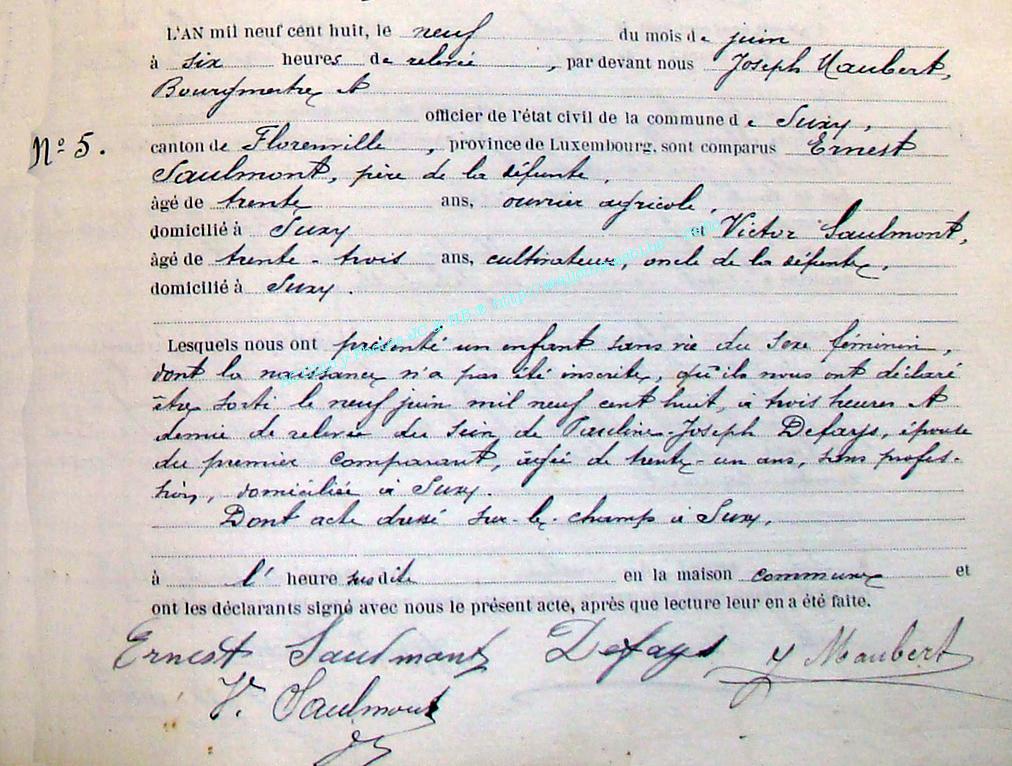 L'AN mil neuf cent huit, le neuf du mois de juin
à six heures de relevée, par devant nous Joseph Maubert,
Bourgmestre et
officier de l'état civil de la commune de Suxy,
N° 5. canton de Florenville, province de Luxembourg, sont comparus Ernest
Saulmont, père de la défunte,
âgé de trente ans, ouvrier agricole,
domicilié à Suxy et Victor Saulmont,
âgé de trente-trois ans, cultivateur, oncle de la défunte,
domicilié à Suxy.
Lesquels nous ont présenté un enfant sans vie du sexe féminin,
dont la naissance n'a pas été inscrite, qu'ils nous ont déclaré
être sorti le neuf juin mil neuf cent huit, à trois heures et
demie de relevée du sein de Pauline-Joseph Defays, épouse
du premier comparant, âgée de trente-un ans, sans profes-
sion, domiciliée à Suxy.
Dont acte dressé sur-le-champ à Suxy,
à l'heure susdite en la maison commune et
ont les déclarants signé avec nous le présent acte, après que lecture leur en a été faite.
Ernest Saulmont Defays J Maubert
V. Saulmont